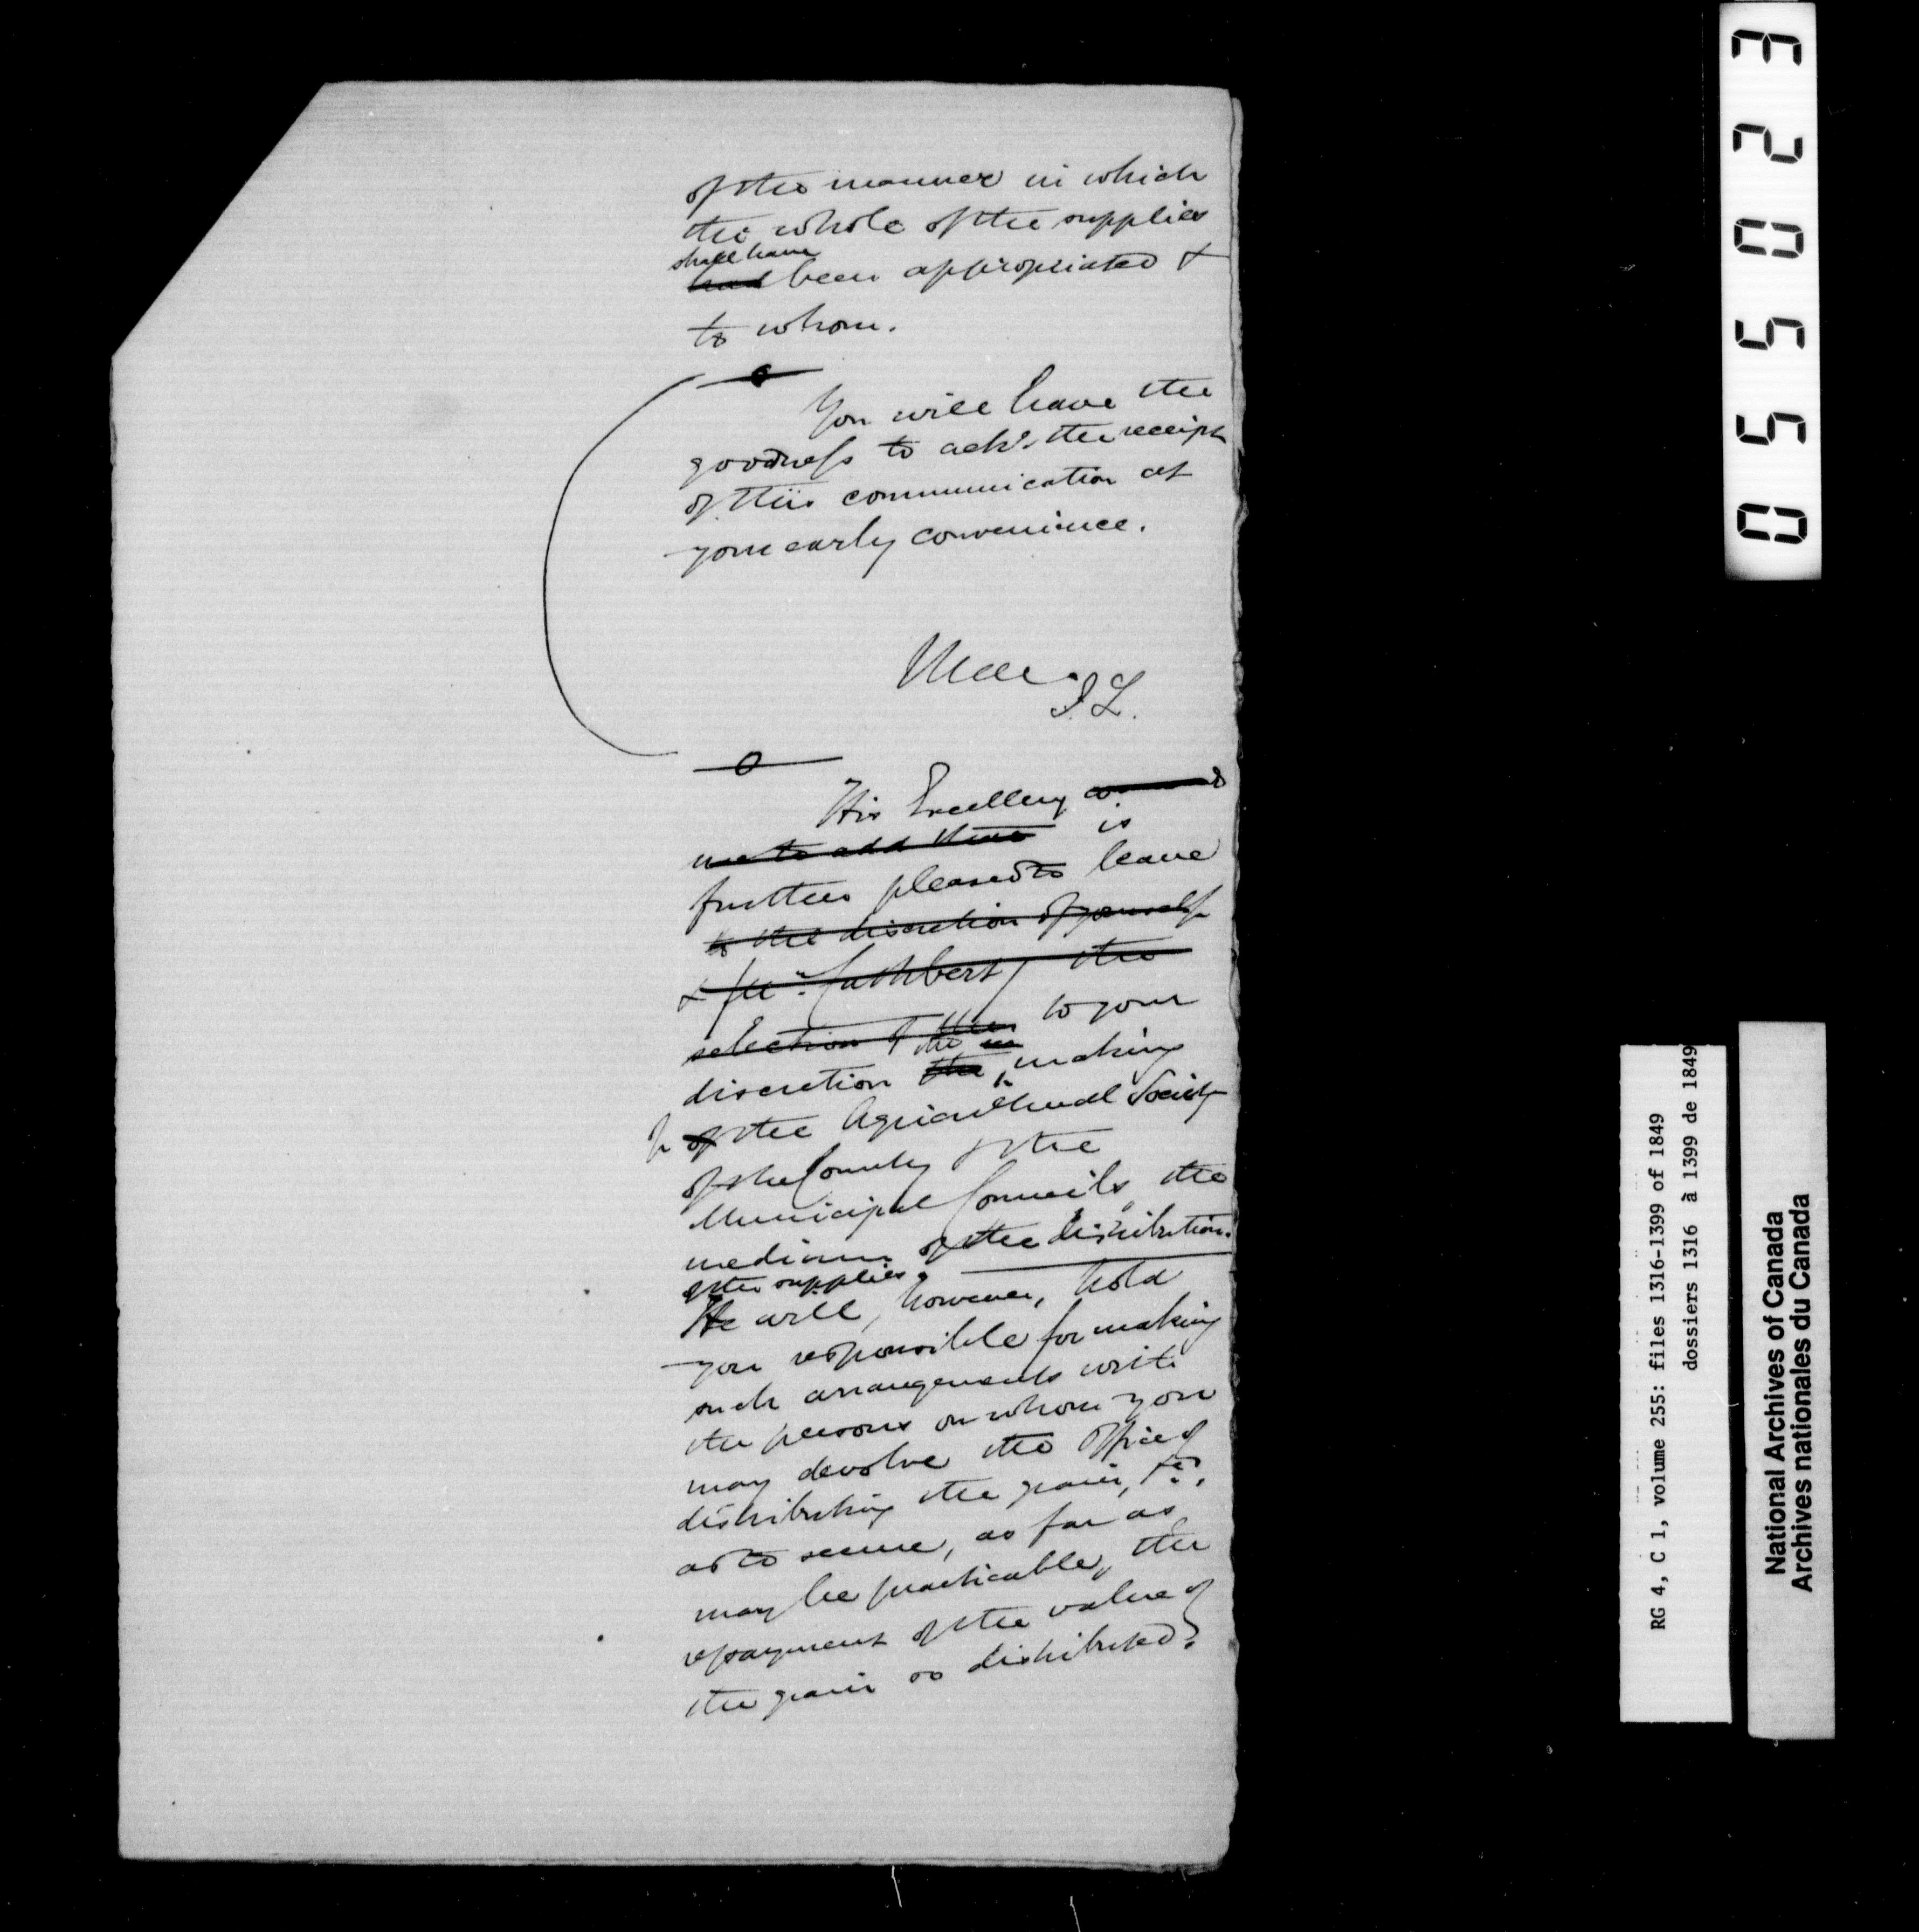 of the manner in which
the whole of the supplies
shall have
had been appropriated &
to whom.
You will have the
goodness to ackn. the receipt
of this communication at
your early convenience.
J.L.
His Excellency
me to add that is
further pleased to leave
to the discretion of yourself
& Mr. Cuthbert, the
selection of the to your
discretion the the making
of the Agricultural Society
of the County & the
Municipal Councils, the
medium of the distribution.
of the supplies.
He will, however, hold
you responsible for making
such arrangements with
the persons on whom you
may devolve the office of
distributing the grain, &c.,
as to secure, as far as
may be practicable, the
repayment of the value of
the grain so distributed.
055023
RG 4, C 1, volume 255: files 1316-1399 of 1849
dossiers 1316 à 1399 de 1849
National Archives of Canada
Archives nationales du Canada